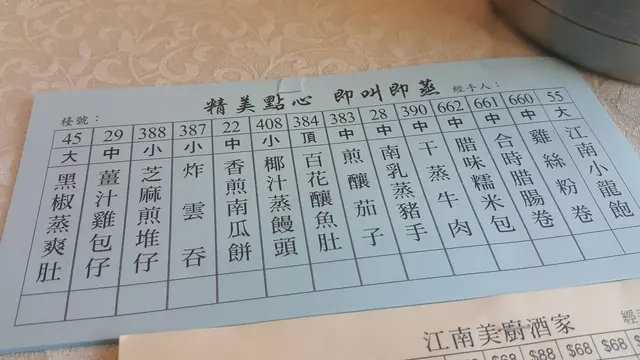 精美點心 即叫即蒸
枱號：
經手人：
55 大 江南小籠飽
660 中 雞絲粉卷
661 中 合時臘腸卷
662 中 臘味糯米包
390 中 干蒸牛肉
28 中 南乳蒸豬手
383 中 煎釀茄子
384 頂 百花釀魚肚
408 小 椰汁蒸饅頭
22 中 香煎南瓜餅
387 小 炸雲吞
388 小 芝麻煎堆仔
29 中 薑汁雞包仔
45 大 黑椒蒸爽肚
江南美廚酒家
$68 $68 $68 $68